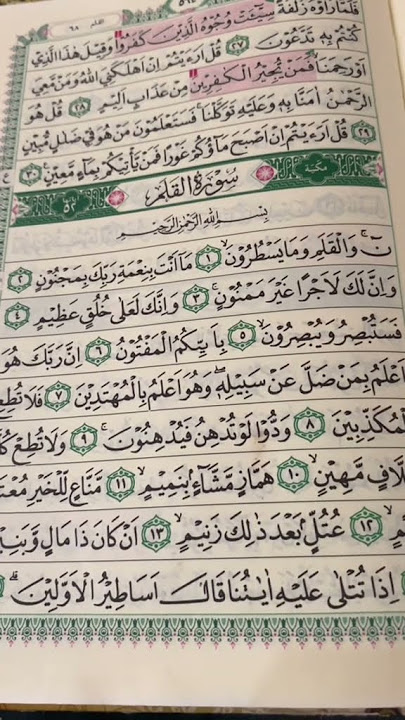 القلم ٦٨
فَلَمَّا رَاَوْهُ زُلْفَةً سِيْٓـَٔتْ وُجُوْهُ الَّذِيْنَ كَفَرُوْا وَقِيْلَ هٰذَا الَّذِيْ
كُنْتُمْ بِهٖ تَدَّعُوْنَ ٢٧ قُلْ اَرَءَيْتُمْ اِنْ اَهْلَكَنِيَ اللّٰهُ وَمَنْ مَّعِيَ
اَوْ رَحِمَنَا فَمَنْ يُّجِيْرُ الْكٰفِرِيْنَ مِنْ عَذَابٍ اَلِيْمٍ ٢٨ قُلْ هُوَ
الرَّحْمٰنُ اٰمَنَّا بِهٖ وَعَلَيْهِ تَوَكَّلْنَا فَسَتَعْلَمُوْنَ مَنْ هُوَ فِيْ ضَلٰلٍ مُّبِيْنٍ
٢٩ قُلْ اَرَءَيْتُمْ اِنْ اَصْبَحَ مَآؤُكُمْ غَوْرًا فَمَنْ يَّأْتِيْكُمْ بِمَآءٍ مَّعِيْنٍ ٣٠ ع
مكية سُوْرَةُ الْقَلَمِ ٥٢
بِسْمِ اللّٰهِ الرَّحْمٰنِ الرَّحِيْمِ
نٓ وَالْقَلَمِ وَمَا يَسْطُرُوْنَ ١ مَآ اَنْتَ بِنِعْمَةِ رَبِّكَ بِمَجْنُوْنٍ ٢
وَاِنَّ لَكَ لَاَجْرًا غَيْرَ مَمْنُوْنٍ ٣ وَاِنَّكَ لَعَلٰى خُلُقٍ عَظِيْمٍ ٤
فَسَتُبْصِرُ وَيُبْصِرُوْنَ ٥ بِاَيِّىكُمُ الْمَفْتُوْنُ ٦ اِنَّ رَبَّكَ هُوَ
اَعْلَمُ بِمَنْ ضَلَّ عَنْ سَبِيْلِهٖ وَهُوَ اَعْلَمُ بِالْمُهْتَدِيْنَ ٧ فَلَا تُطِعِ
الْمُكَذِّبِيْنَ ٨ وَدُّوْا لَوْ تُدْهِنُ فَيُدْهِنُوْنَ ٩ وَلَا تُطِعْ
مَّهِيْنٍ ١٠ هَمَّازٍ مَّشَّآءٍ بِنَمِيْمٍ ١١ مَّنَّاعٍ لِّلْخَيْرِ
١٢ عُتُلٍّ بَعْدَ ذٰلِكَ زَنِيْمٍ ١٣ اَنْ كَانَ ذَا مَالٍ
اِذَا تُتْلٰى عَلَيْهِ اٰيٰتُنَا قَالَ اَسَاطِيْرُ الْاَوَّلِيْنَ